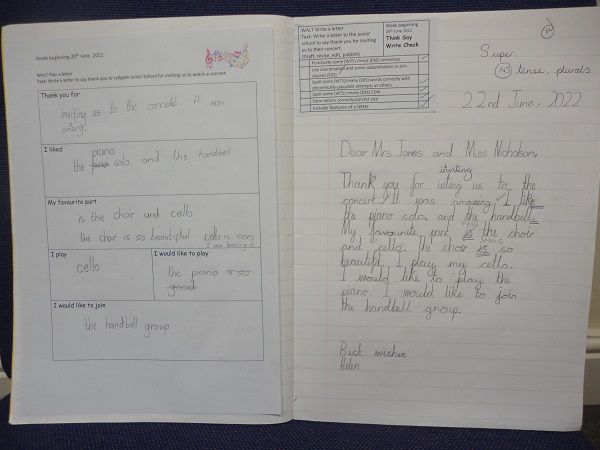 Week beginning 20th June, 2022
WALT Plan a letter
Task: Write a letter to say thank you to Lydgate Junior School for inviting us to watch a concert.
Thank you for
inviting us to the concert it was
amazing!
I liked
piano
the piano solo and the handbell
My favourite part
is the choir and cello
the choir is so beautiful cello is
I play
cello
I would like to play
the piano
good
I would like to join
the handbell group
WALT Write a letter
Task: Write a letter to the junior
school to say thank you for inviting
us to their concert.
(draft, revise, edit, publish)
Week beginning
20th June 2022
Think Say
Write Check
Punctuate some (WTS) /most (EXS) sentences
Use coordination and some subordination to join
clauses (EXS)
Spell some (WTS)/many (EXS) words correctly with
phonetically-plausible attempts at others.
Spell some (WTS) /many (EXS) CEW
Form letters correctly/correct size
Include features of a letter
Super
NS tense, plurals
22nd June, 2022
Dear Mrs Jones and Miss Nicholson,
inviting
Thank you for us to the
concert. It was amazing. I like
piano solo and the handbells.
was
My favourite part is the choir
was
and cello. The choir is so
beautiful. I play my cello.
I would like to play the
piano. I would like to join
the handbell group.
Best wishes